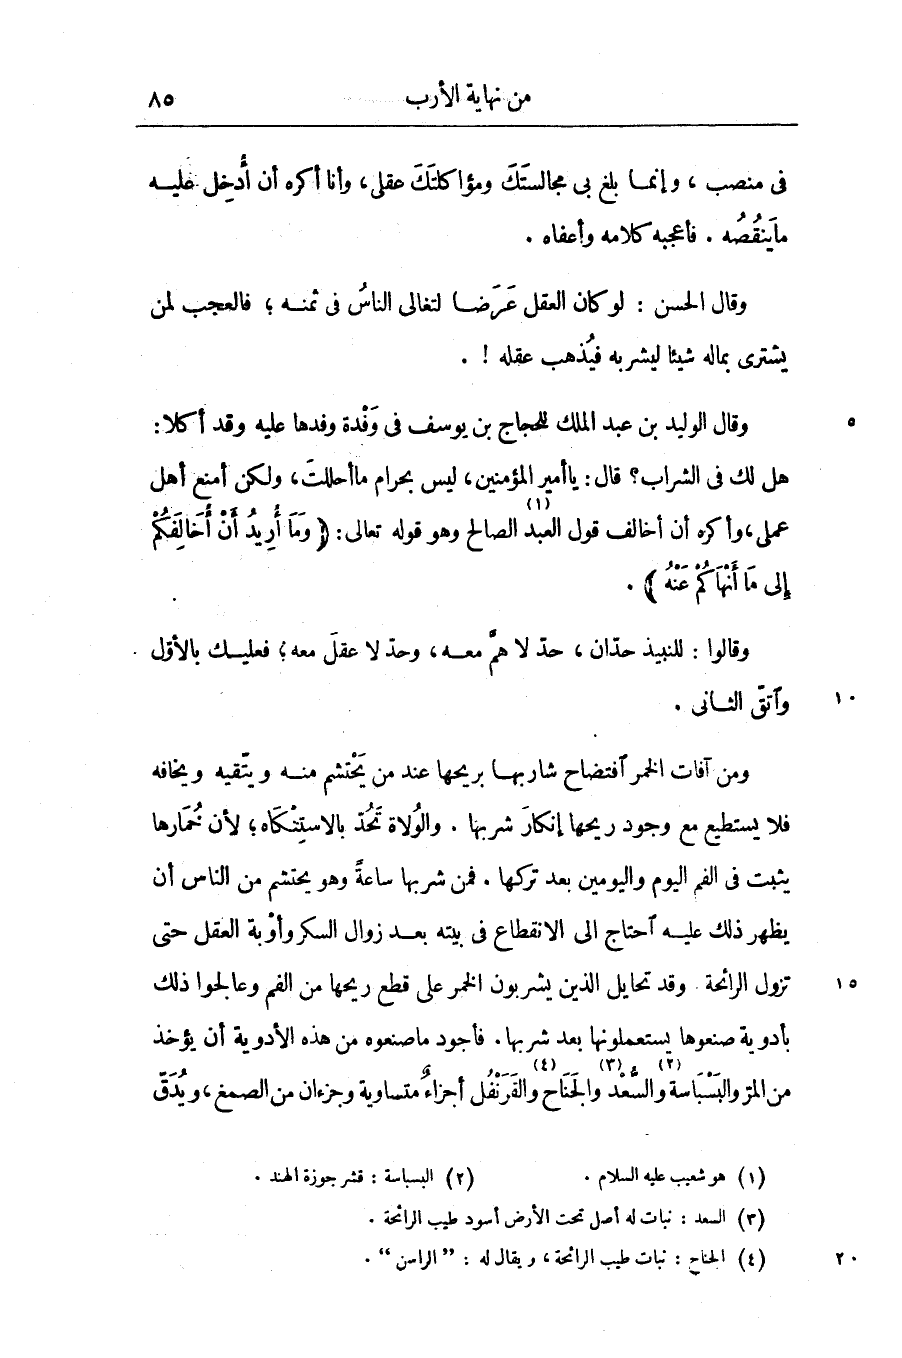 من نهاية الأرب ٨٥
فى منصب ، وإنما بلغ بى مجالستَكَ ومؤاكلتَكَ عقلى، وأنا أكره أن أُدخِل عليه
ماَينقُصُه . فأعجبه كلامه وأعفاه .
وقال الحسن : لو كان العقل عَرَضا لتغالى الناسُ فى ثمنه ؛ فالعجب لمن
يشترى بماله شيئا ليشربه فيُذهب عقله ! .
وقال الوليد بن عبد الملك للحجاج بن يوسف فى وَفْدة وفدها عليه وقد أكلا : ٥
هل لك فى الشراب؟ قال : ياأمير المؤمنين، ليس بحرام ماأحللتَ، ولكن أمنع أهل
عملى، وأكره أن أخالف قول العبد (١) الصالح وهو قوله تعالى: ﴿ وَمَا أُرِيدُ أَنْ أُخَالِفَكُمْ
إِلى مَا أَنْهَاكُمْ عَنْهُ ﴾ .
وقالوا : للنبيذ حدّان ، حدّ لا همَّ معه ، وحدّ لا عقلَ معه ؛ فعليك بالأوّل
وٱتقّ الثانى . ١٠
ومن آفات الخمر ٱفتضاح شاربها بريحها عند من يَحْتشم منه ويتّقيه ويخافه
فلا يستطيع مع وجود ريحها إنكارَ شربها . والوُلاة تَحُدّ بالاستِنْكَاه ؛ لأن خُمَارها
يثبت فى الفم اليوم واليومين بعد تركها . فمن شربها ساعةً وهو يحتشم من الناس أن
يظهر ذلك عليه ٱحتاج الى الانقطاع فى بيته بعد زوال السكر وأوْبة العقل حتى
تزول الرائحة . وقد تحايل الذين يشربون الخمر على قطع ريحها من الفم وعالجوا ذلك ١٥
بأدوية صنعوها يستعملونها بعد شربها . فأجود ماصنعوه من هذه الأدوية أن يؤخذ
من المرّ والبَسْبَاسة (٢) والسُّعْد (٣) والجَنَاح (٤) والقَرَنْفُل أجزاءٌ متساوية وجزءان من الصمغ ، ويُدَقّ
(١) هو شعيب عليه السلام . (٢) البسباسة : قشر جوزة الهند .
(٣) السعد : نبات له أصل تحت الأرض أسود طيب الرائحة .
(٤) الجناح : نبات طيب الرائحة ، ويقال له : " الراسن " . ٢٠